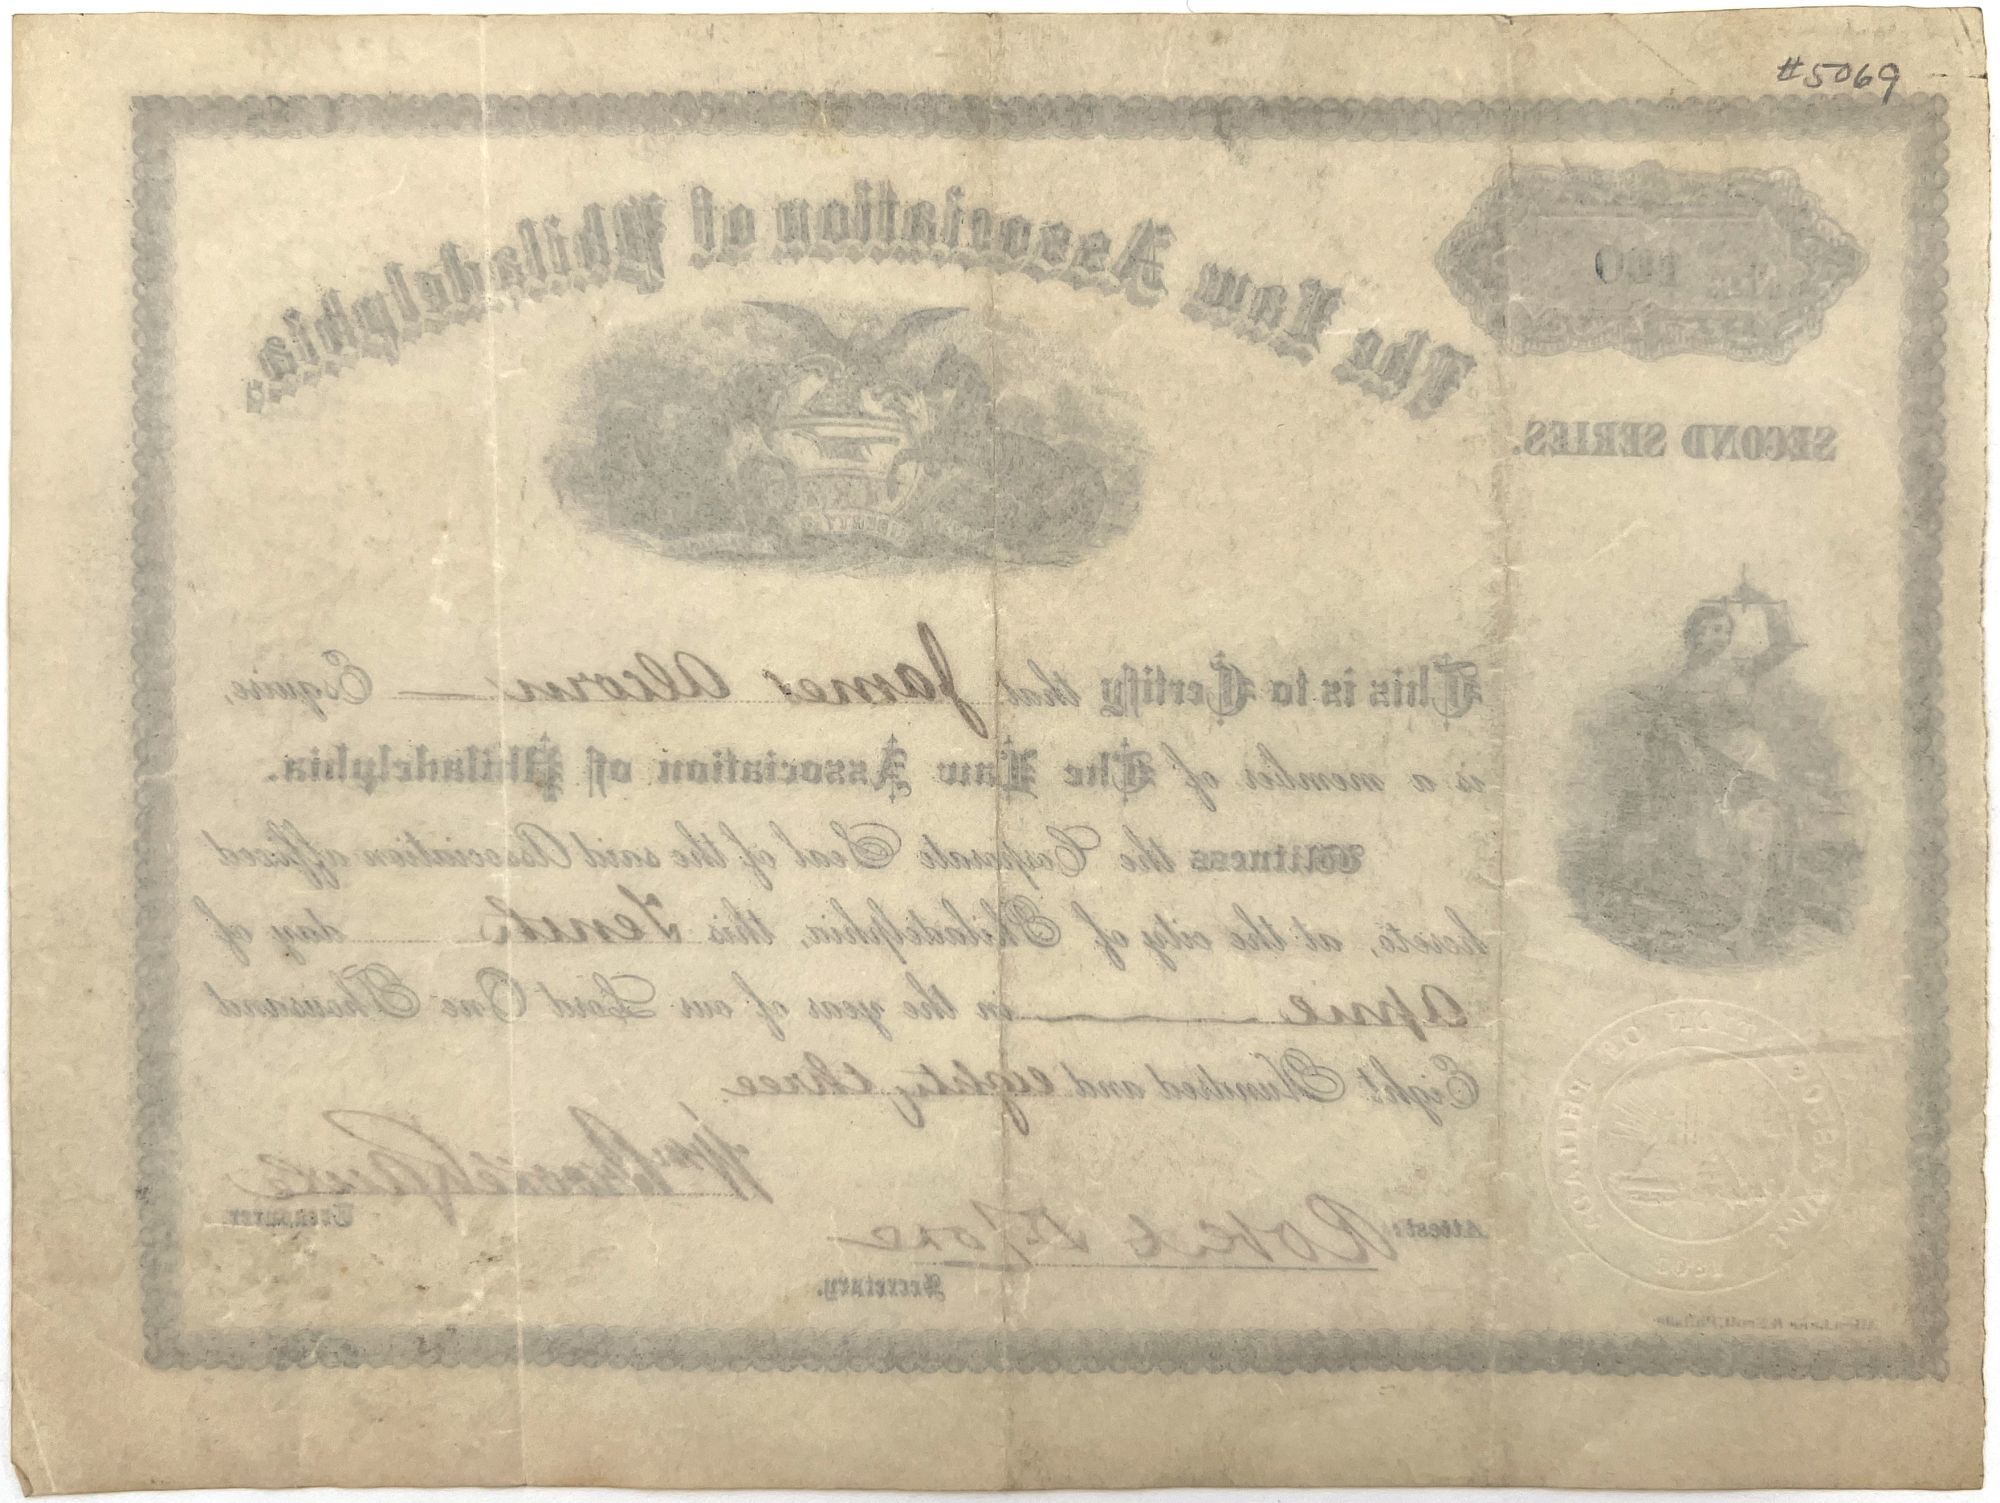 #5069
The Law Association of Philadelphia.
SECOND SERIES.
This is to Certify that James Alcorn Esquire,
is a member of The Law Association of Philadelphia.
Witness the Corporate Seal of the said Association affixed
hereto, at the city of Philadelphia, this Tenth day of
April in the year of our Lord One Thousand
Eight Hundred and eighty three.
Treasurer.
Attest:
Secretary.